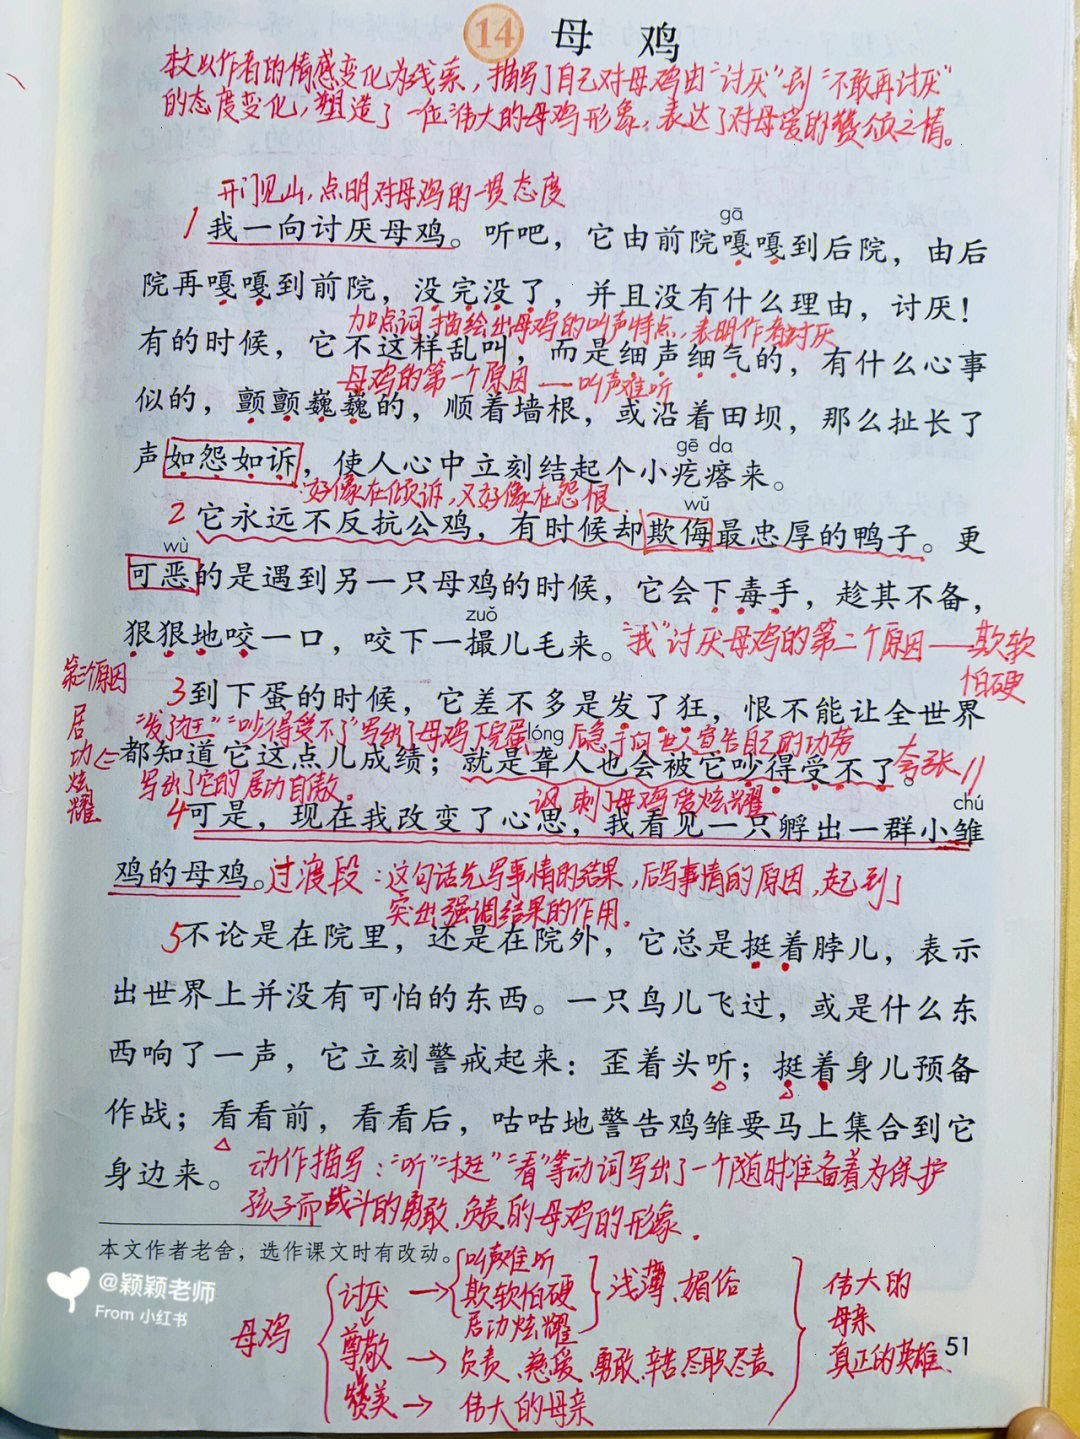 14 母鸡
本文以作者的情感变化为线索，描写了自己对母鸡由“讨厌”到“不敢再讨厌”
的态度变化，塑造了一位伟大的母鸡形象，表达了对母爱的赞颂之情。
开门见山，点明对母鸡的一贯态度
gā
1 我一向讨厌母鸡。听吧，它由前院嘎嘎到后院，由后
院再嘎嘎到前院，没完没了，并且没有什么理由，讨厌！
加点词描绘出母鸡的叫声特点，表明作者讨厌
有的时候，它不这样乱叫，而是细声细气的，有什么心事
母鸡的第一个原因——叫声难听
似的，颤颤巍巍的，顺着墙根，或沿着田坝，那么扯长了
gē da
声如怨如诉，使人心中立刻结起个小疙瘩来。
好像在倾诉，又好像在怨恨.
wǔ
2 它永远不反抗公鸡，有时候却欺侮最忠厚的鸭子。更
wù
可恶的是遇到另一只母鸡的时候，它会下毒手，趁其不备，
zuǒ
狠狠地咬一口，咬下一撮儿毛来。“我”讨厌母鸡的第二个原因——欺软
怕硬
第三个原因
居功炫耀
3 到下蛋的时候，它差不多是发了狂，恨不能让全世界
“发了狂”“吵得受不了”写出了母鸡下完蛋后急于向世人宣告自己的功劳
lóng
都知道它这点儿成绩；就是聋人也会被它吵得受不了。夸张
写出了它的居功自傲。
讽刺了母鸡爱炫耀
chú
4 可是，现在我改变了心思，我看见一只孵出一群小雏
鸡的母鸡。过渡段：这句话先写事情的结果，后写事情的原因，起到了
突出强调结果的作用.
5 不论是在院里，还是在院外，它总是挺着脖儿，表示
出世界上并没有可怕的东西。一只鸟儿飞过，或是什么东
西响了一声，它立刻警戒起来：歪着头听；挺着身儿预备
作战；看看前，看看后，咕咕地警告鸡雏要马上集合到它
身边来。
动作描写：“听”“挺”“看”等动词写出了一个随时准备着为保护
孩子而战斗的勇敢、负责的母鸡的形象.
本文作者老舍，选作课文时有改动。
@颖颖老师
From 小红书
母鸡
讨厌 → 叫声难听
欺软怕硬
居功炫耀
浅薄、媚俗
尊敬 → 负责、慈爱、勇敢、辛苦、尽职尽责
赞美 → 伟大的母亲
伟大的
母亲
真正的英雄
51